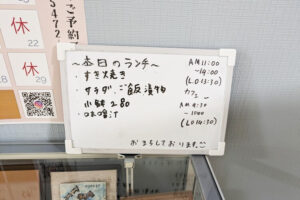 ご予約
休
22
休
29
～本日のランチ～
・すき焼き
・サラダ、ご飯、漬物
小鉢2品
・味噌汁
AM11:00
～14:00
(L.O 13:30)
カフェ
～
(L.O 14:30)
おまちしております。